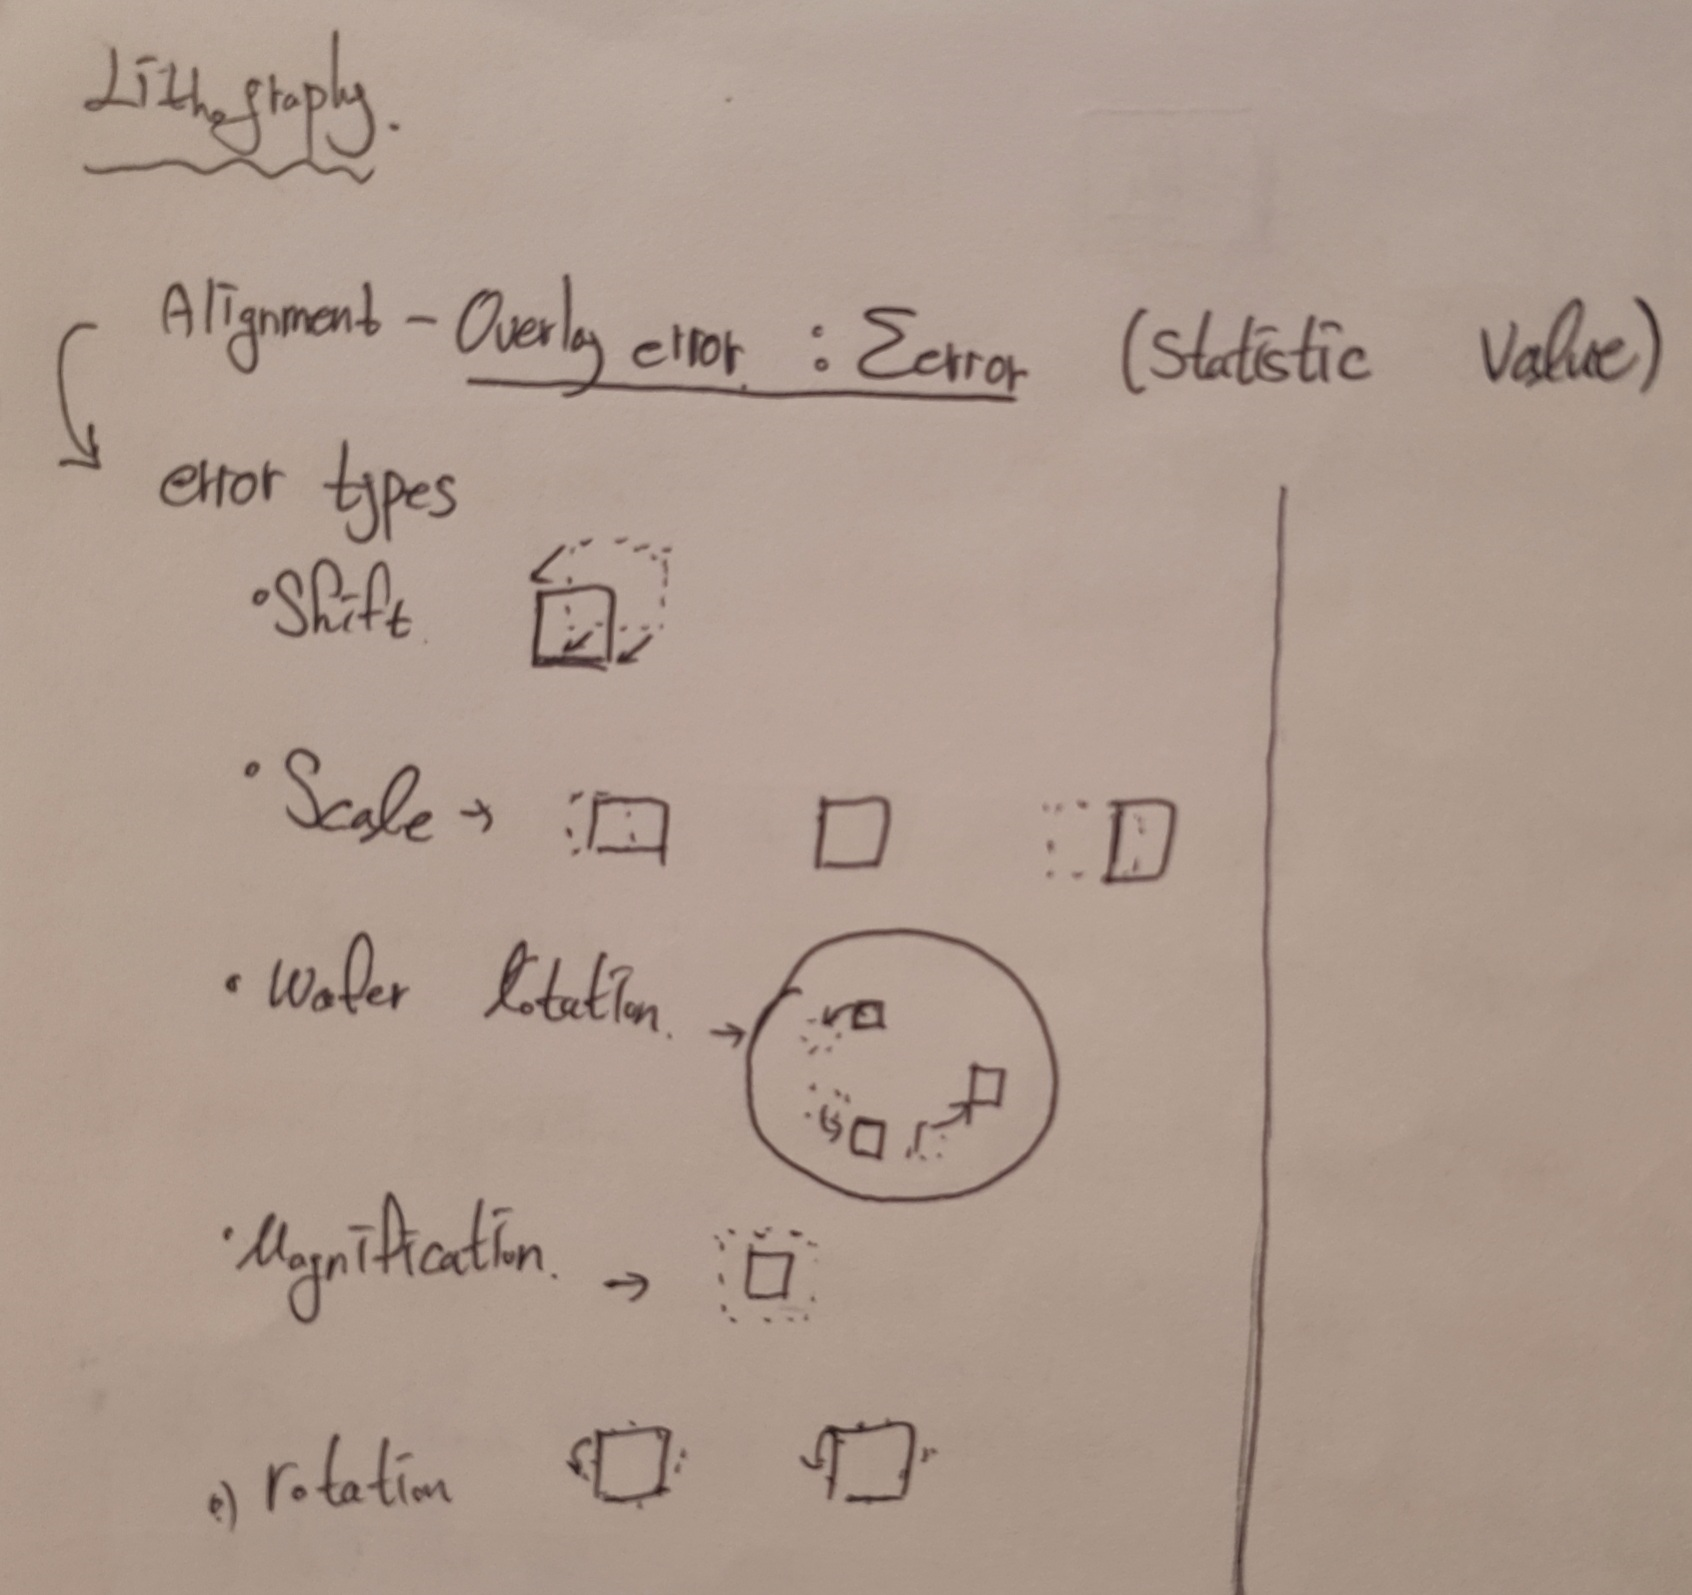 Lithography.
Alignment - Overlay error : Σerror (Statistic Value)
error types
• Shift
• Scale →
• Wafer Rotation. →
• Magnification. →
e) rotation